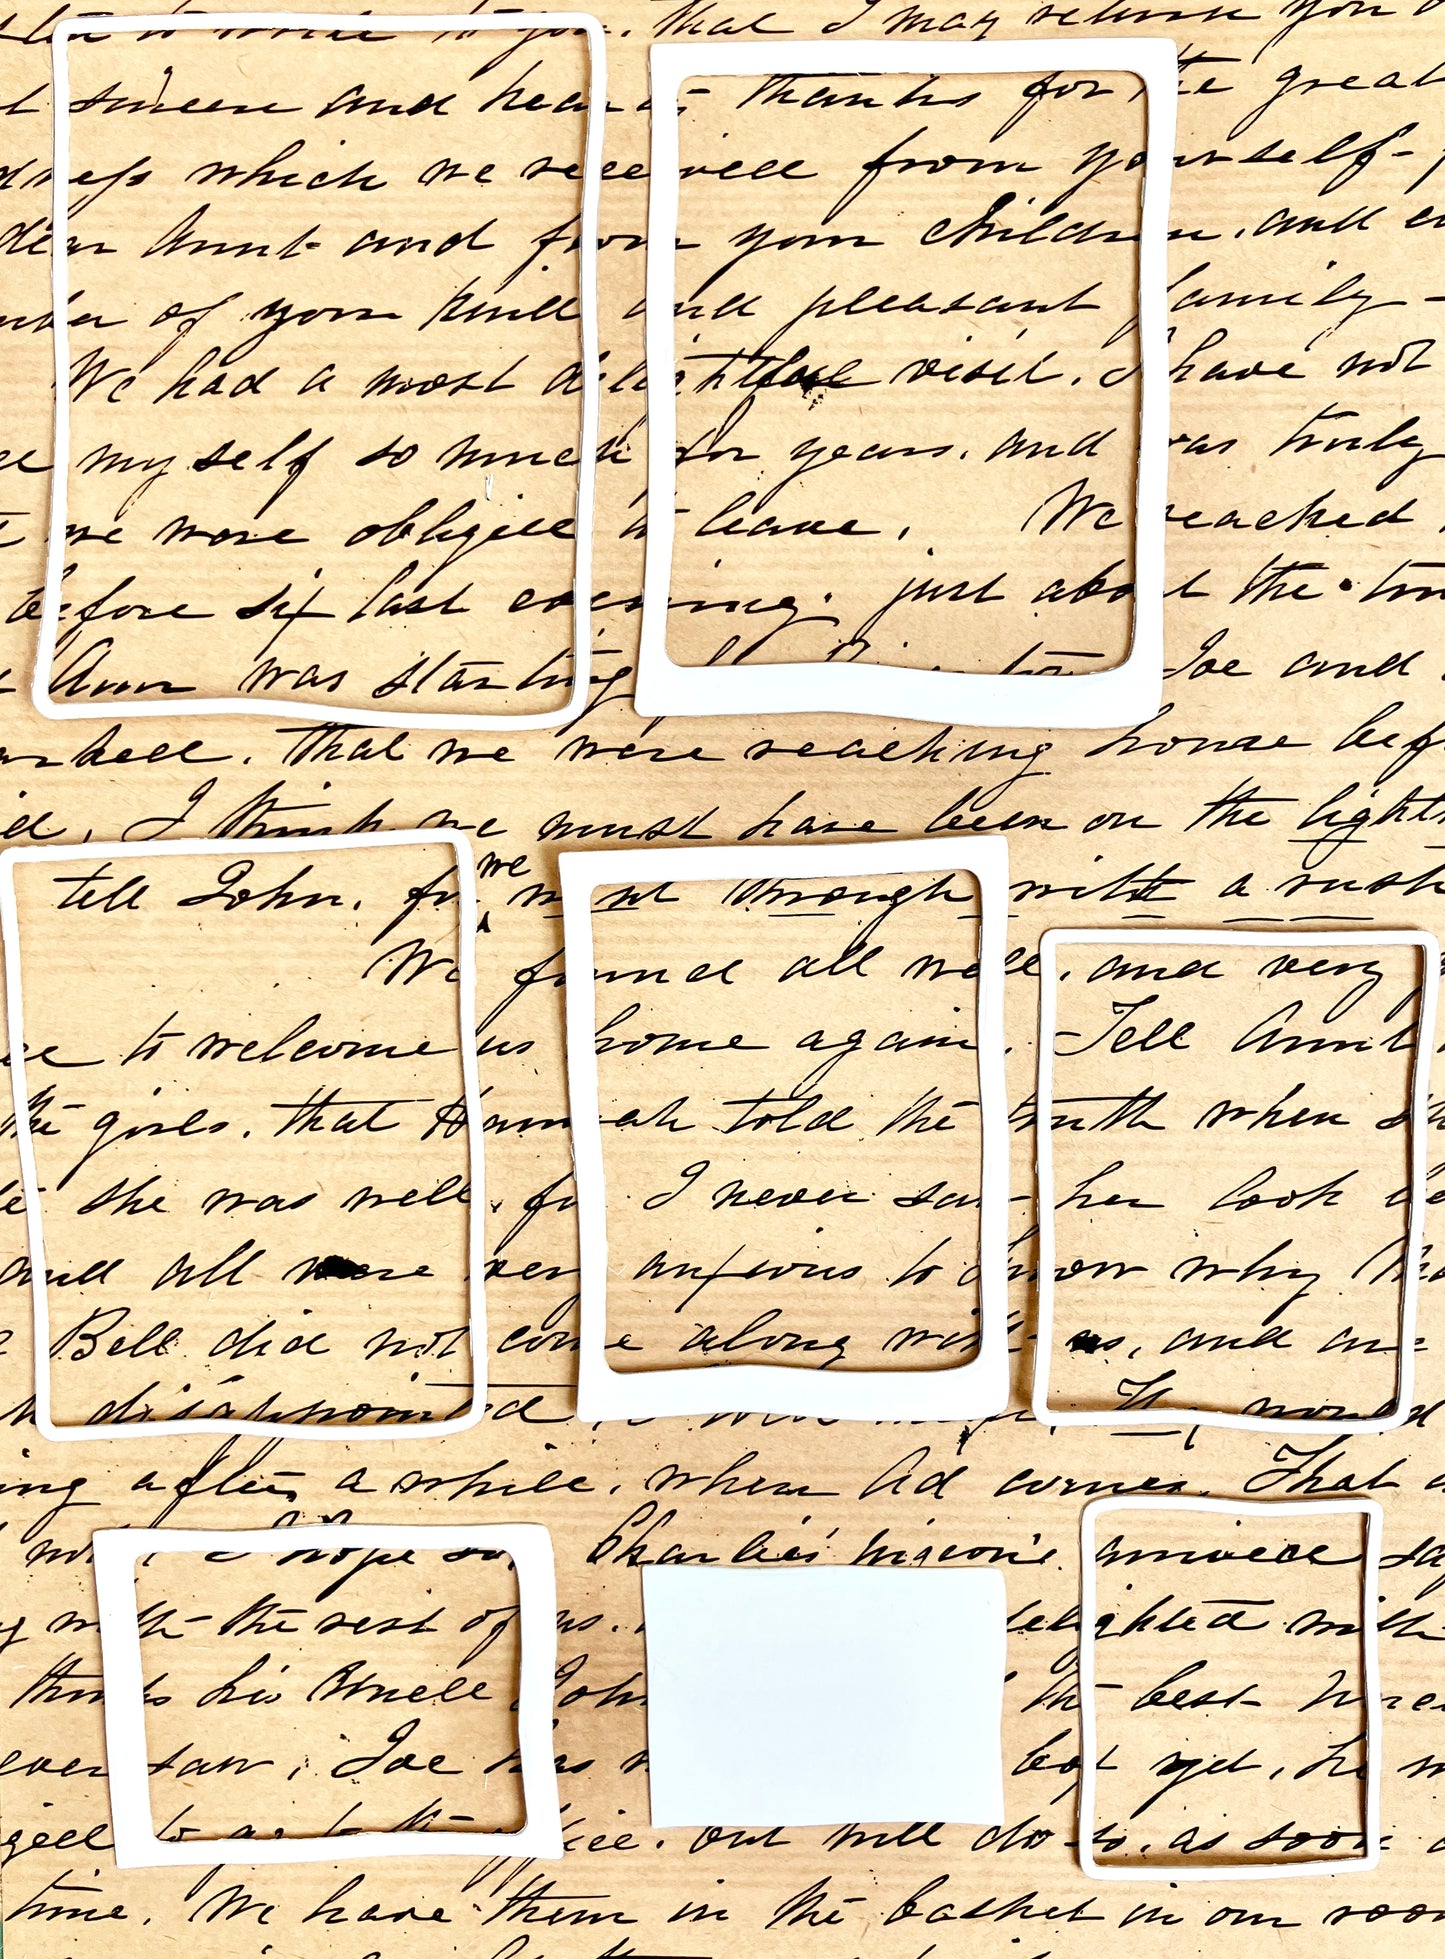 to you, that I may return you
sincere and hearty thanks for the great
which we received from yourself-
dear Aunt and from your children, and
of your kind and pleasant family-
We had a most delightful visit. I have not
myself so much for years, and was truly
we were obliged to leave. We reached
before six last evening. just about the
Ann was starting Joe and
that we were reaching home bef
I think we must have been on the lightn
tell John, for we went through with a rush
We found all well, and very
to welcome us home again. Tell Aunt
the girls, that Hannah told the truth when
she was well, for I never saw her look be
and all were very anxious to know why
Bell did not come along with us, and are
disappointed They would
ing after a while, when Ad comes. That
not I hope so. Charlie's pigeons arrived sa
with the rest of us. delighted with
thinks his Uncle John the best
ever saw, Joe has yet, he
to go to the office. but will do so, as soon
time. We have them in the basket in our room